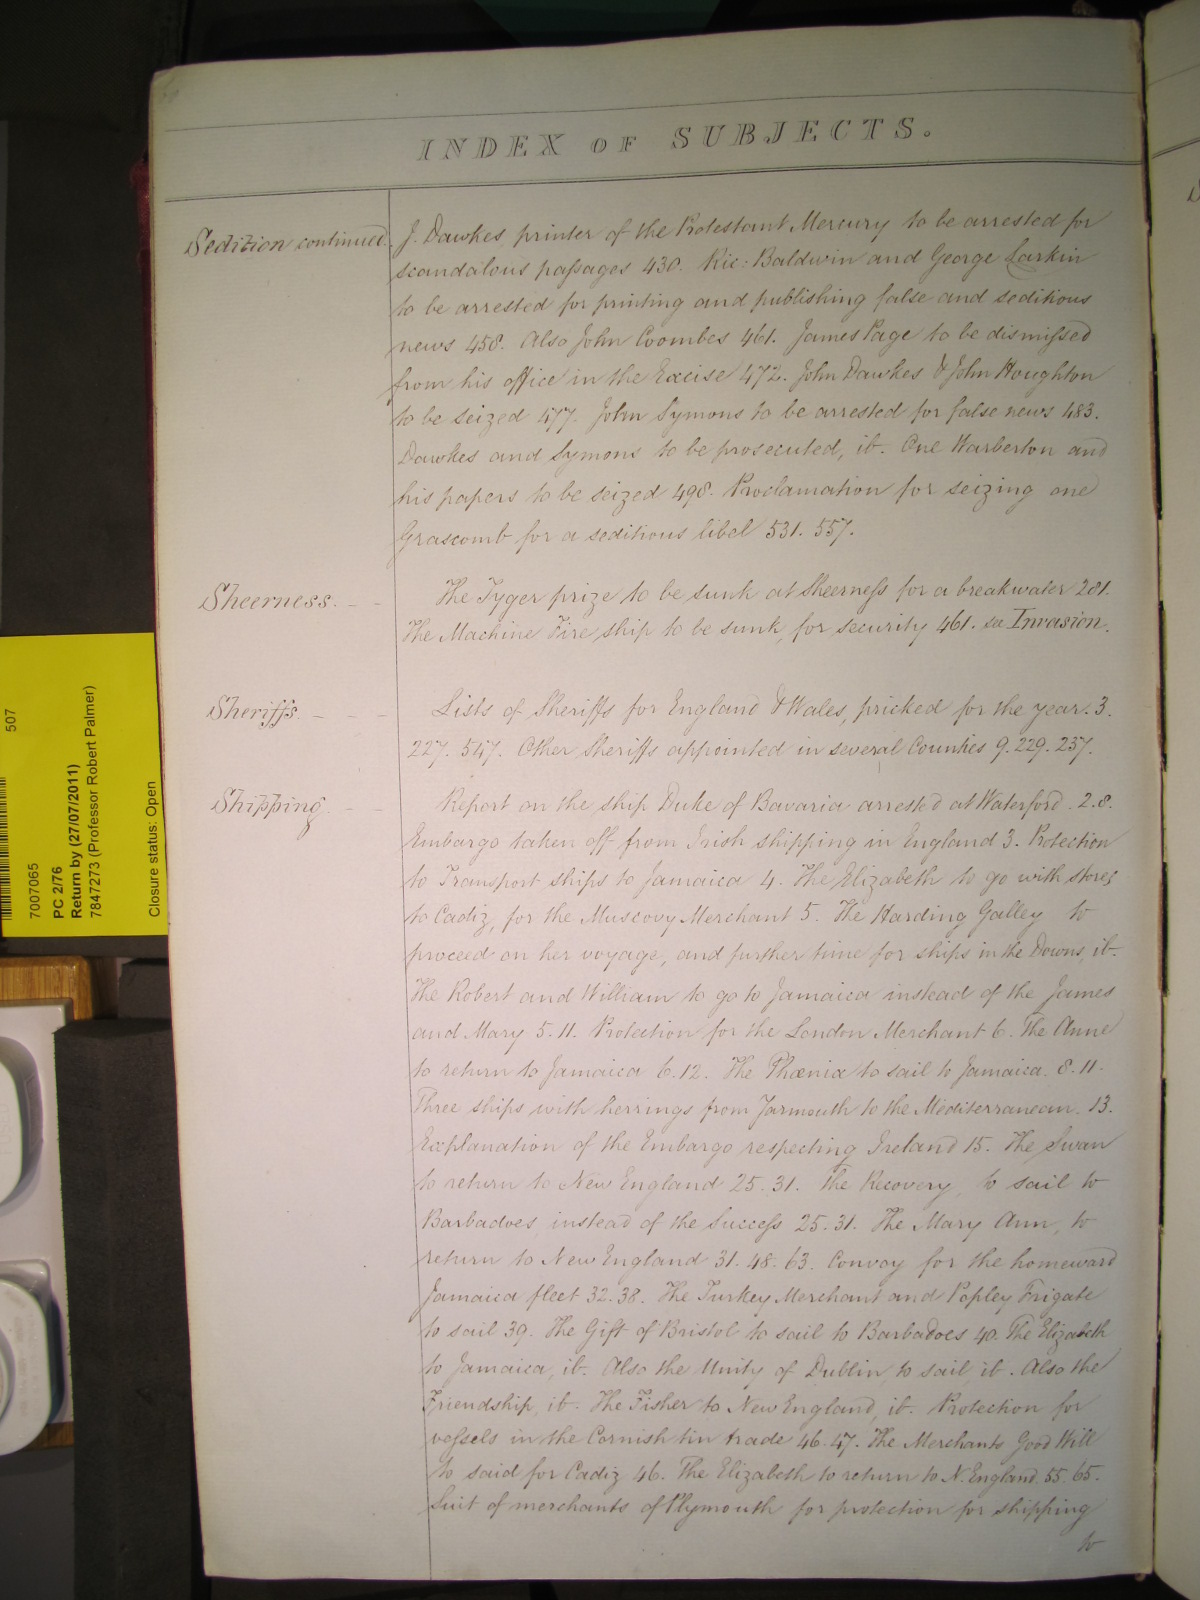 INDEX OF SUBJECTS.
Sedition continued.
J. Dawkes printer of the Protestant Mercury to be arrested for
scandalous passages 430. Ric: Baldwin and George Larkin
to be arrested for printing and publishing false and seditious
news 458. Also John Coombes 461. James Page to be dismissed
from his office in the Excise 472. John Dawkes & John Houghton
to be seized 477. John Symons to be arrested for false news 483.
Dawkes and Symons to be prosecuted, ib. One Warberton and
his papers to be seized 498. Proclamation for seizing one
Grascomb for a seditious libel 531. 557.
Sheerness. - -
The Tyger prize to be sunk at Sheerness for a breakwater 281.
The Machine Fire ship to be sunk, for security 461. see Invasion.
Sheriffs. - - -
Lists of Sheriffs for England & Wales, pricked for the year. 3.
227. 547. Other Sheriffs appointed in several Counties 9. 229. 237.
Shipping. - -
Report on the ship Duke of Bavaria arrested at Waterford. 2. 8.
Embargo taken off from Irish shipping in England 3. Protection
to Transport ships to Jamaica 4. The Elizabeth to go with stores
to Cadiz, for the Muscovy Merchant 5. The Harding Galley to
proceed on her voyage, and further time for ships in the Downs, ib.
The Robert and William to go to Jamaica instead of the James
and Mary 5. 11. Protection for the London Merchant 6. The Anne
to return to Jamaica 6. 12. The Phœnix to sail to Jamaica. 8. 11.
Three ships with herrings from Yarmouth to the Mediterranean. 13.
Explanation of the Embargo respecting Ireland 15. The Swan
to return to New England 25. 31. The Recovery, to sail to
Barbadoes, instead of the Success 25. 31. The Mary Ann, to
return to New England 31. 48. 63. Convoy for the homeward
Jamaica fleet 32. 38. The Turkey Merchant and Popley Frigate
to sail 39. The Gift of Bristol to sail to Barbadoes 40. The Elizabeth
to Jamaica, ib. Also the Unity of Dublin, to sail, ib. Also the
Friendship, ib. The Fisher to New England, ib. Protection for
vessels in the Cornish tin trade 46. 47. The Merchants Good Will
to said for Cadiz 46. The Elizabeth to return to N. England. 55. 65.
Suit of merchants of Plymouth for protection for shipping
to
507
7007065
PC 2/76
Return by (27/07/2011)
7847273 (Professor Robert Palmer)
Closure status: Open